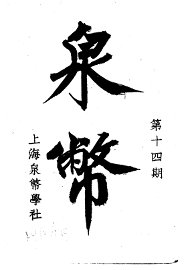 泉幣
第十四期
上海泉幣學社